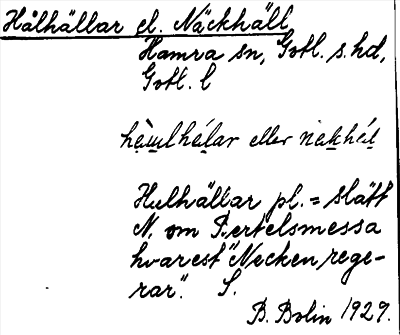 Hålhällar el. Näckhäll
Hamra sn, Gotl. s. hd,
Gotl. l
hàulhálar eller nakhál
Hulhällar pl. = slätt
N. om P.ertelsmessa
hvarest "Necken rege-
rar". S.
B. Bolin 1929.